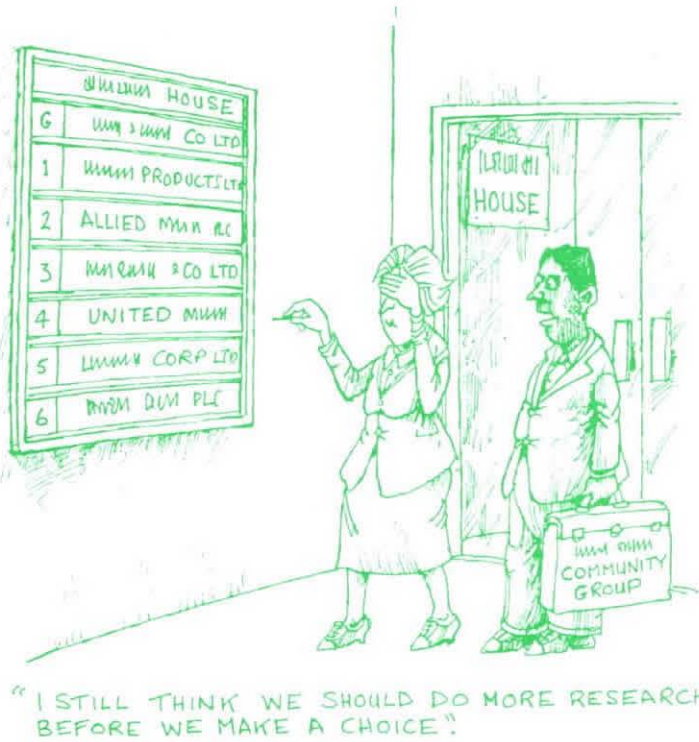 HOUSE
G CO LTD
1 PRODUCTS LTD
2 ALLIED PLC
3 & CO LTD
4 UNITED
5 CORP LTD
6 PLC
HOUSE
COMMUNITY
GROUP
"I STILL THINK WE SHOULD DO MORE RESEARCH
BEFORE WE MAKE A CHOICE".